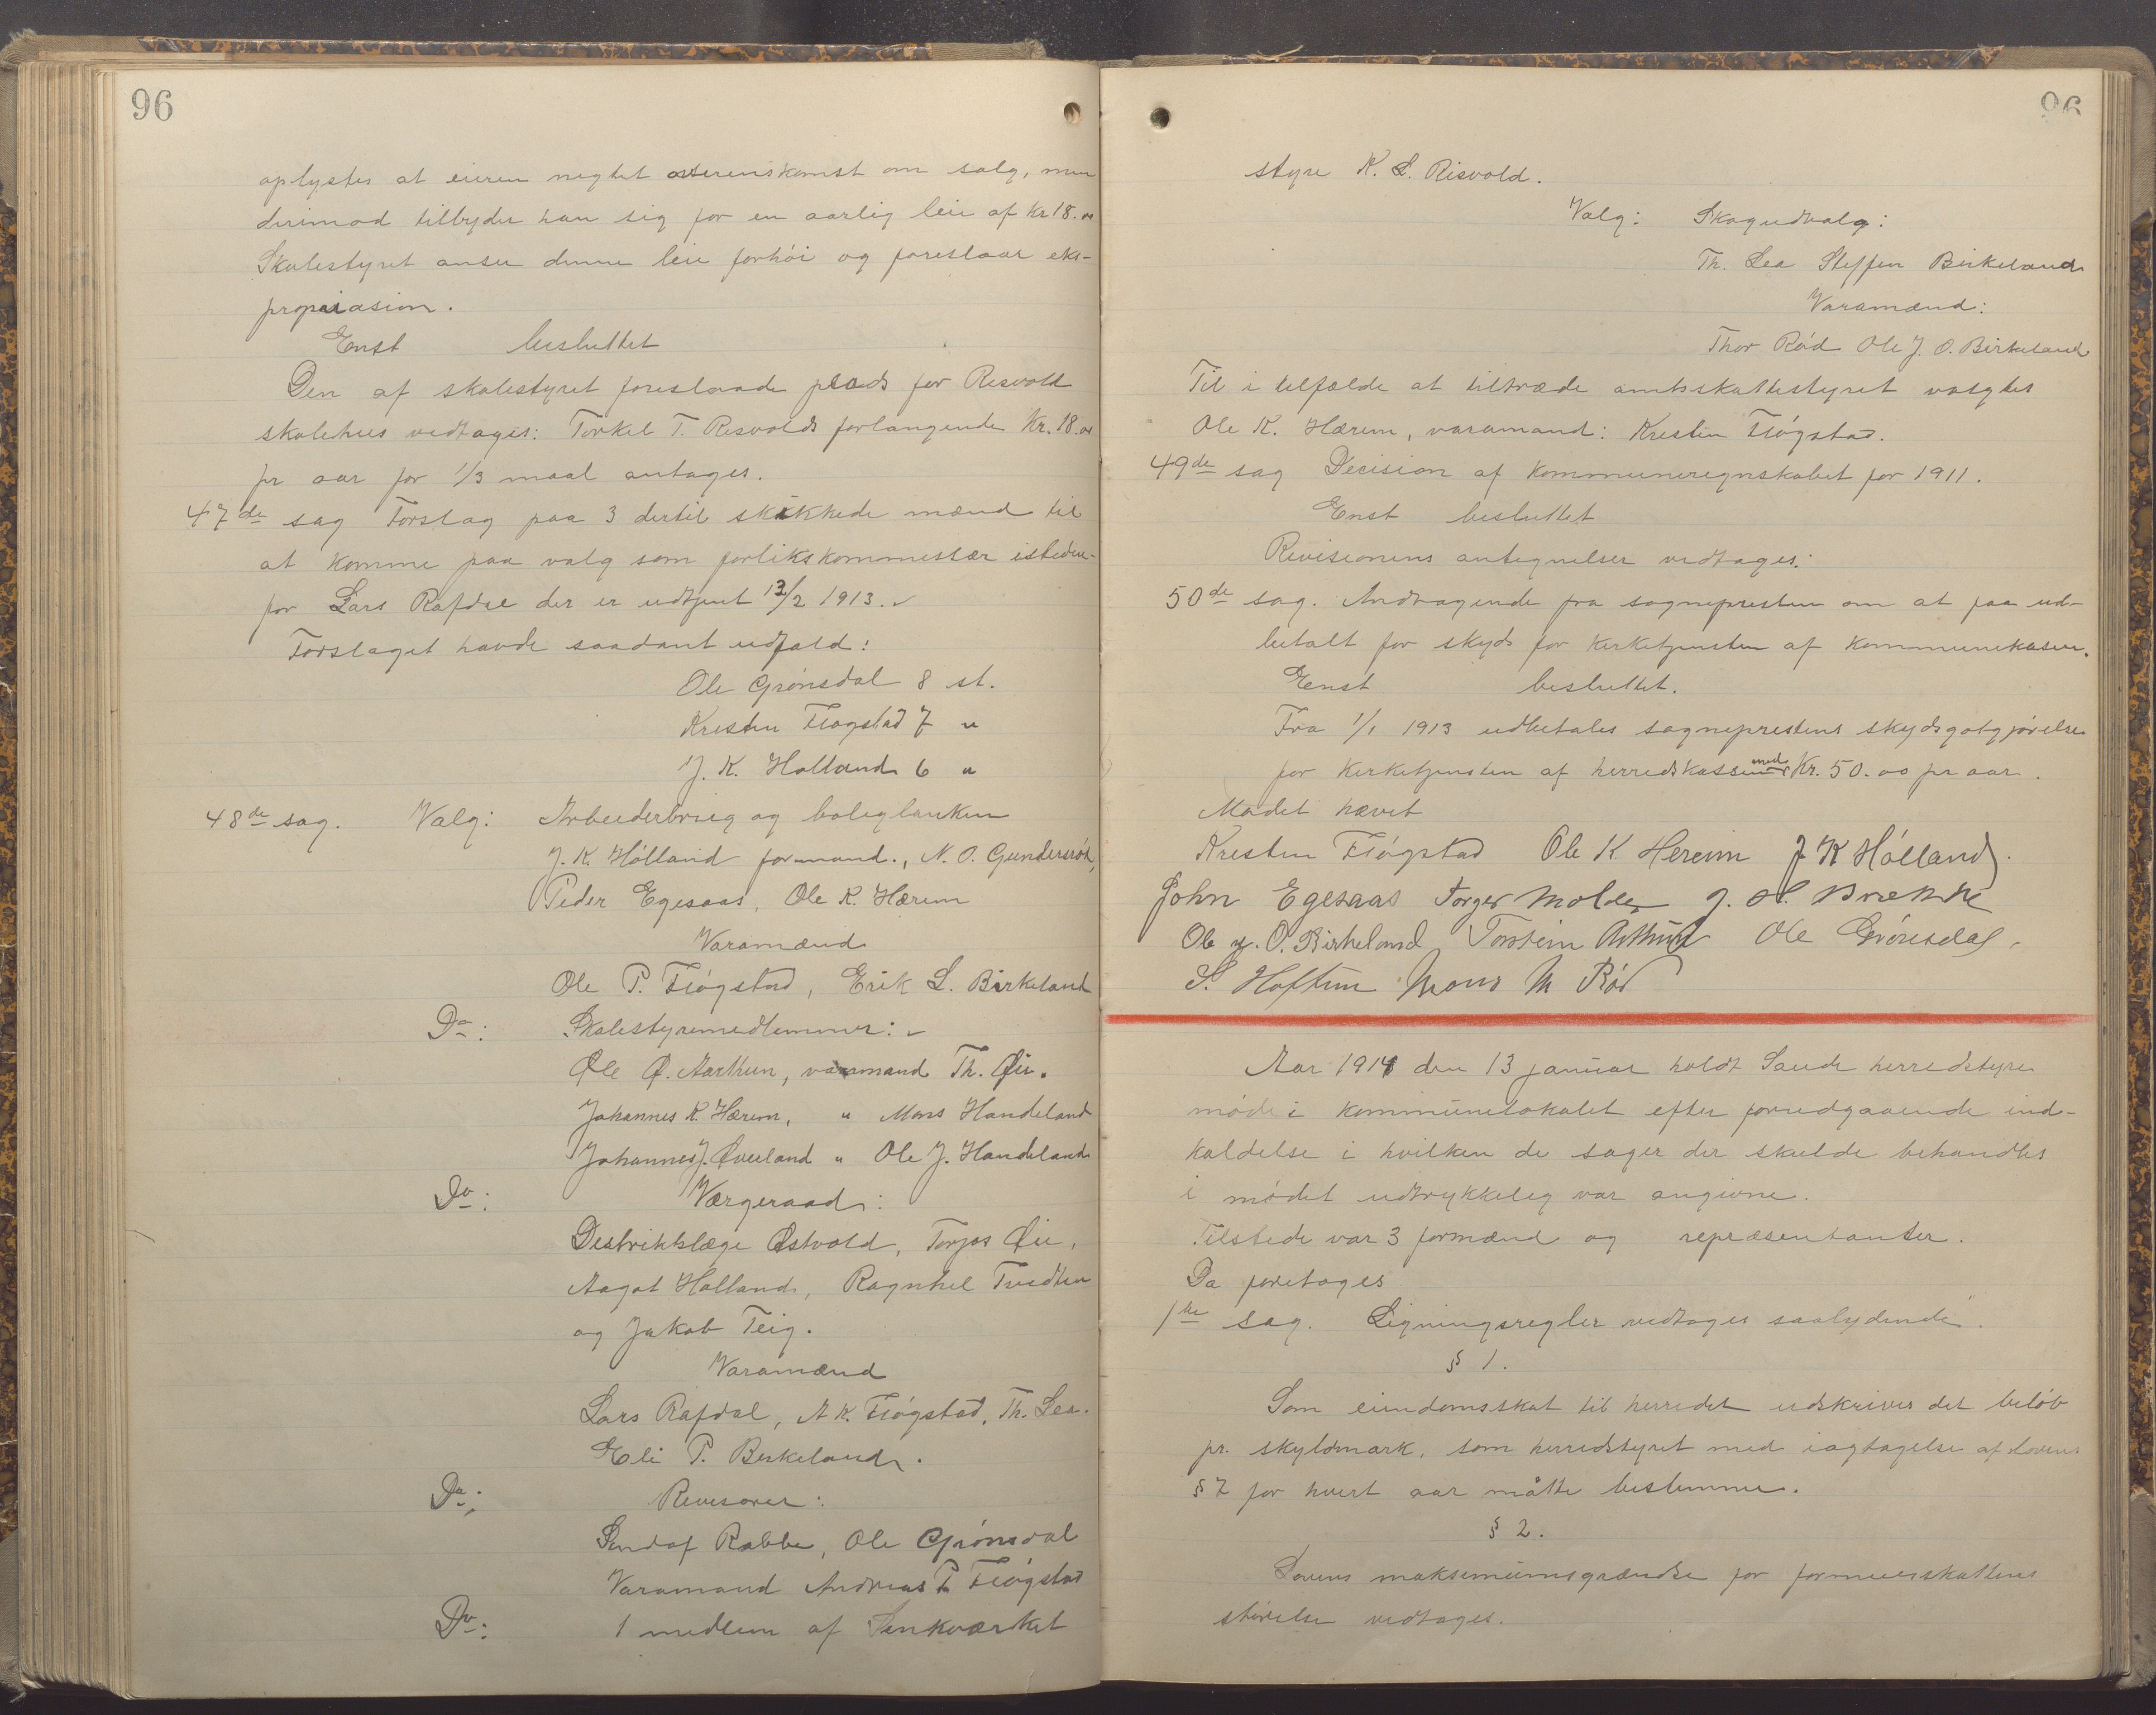 96
oplystes at eieren negtet overenskomst om salg, men
derimod tilbyder han sig for en aarlig leie af Kr 18.00
Skolestyret anser denne leie forhöi og foreslaar eks-
propriasion.
Enst besluttet
Den af skolestyret foreslaade plads for Risvold
skolehus vedtages: Torkel T. Risvolds forlangende Kr. 18.00
pr aar for 1/3 maal antages.
47de sag Forslag paa 3 dertil skikkede mænd til
at komme paa valg som forlikskommissær isteden-
for Lars Rafdal der er udtjent 12/2 1913.
Forslaget havde saadant udfald:
Ole Grönsdal 8 st.
Kresten Flögstad 7 "
J. K. Hölland 6 "
48de sag. Valg: Arbeiderbrug og boligbanken
J. K. Hölland formand., N. O. Gundersröd,
Peder Egesaas, Ole K. Hærem
Varamænd
Ole P. Flögstad, Erik L. Birkeland
Do: Skolestyremedlemmer:
Ole Ø. Aarthun, varamand Th. Øie.
Johannes K. Hærem, " Mons Handeland
Johannes J. Øverland " Ole J. Handeland
Do: Værgeraad:
Distriktslæge Østvold, Torjos Øie,
Aagot Hölland, Ragnhil Tvedten
og Jakob Teig.
Varamænd
Lars Rafdal, A K. Flögstad, Th. Lea.
Eli P. Birkeland.
Do: Revisorer:
Rabbe, Ole Grönsdal
Varamand Andreas P. Flögstad
Do: 1 medlem af
96
styre K. L. Risvold.
Valg: Skogudvalg:
Th. Lea Steffen Birkeland
Varamænd:
Thor Rød Ole J. O. Birkeland
Til i tilfælde at tiltræde amtsskattestyret valgtes
Ole K. Hærem, varamand: Kresten Flögstad.
49de sag Decision af kommuneregnskabet for 1911.
Enst besluttet
Revisionens antegnelser vedtages.
50de sag. Andragende fra sognepresten om at faa ud-
betalt for skyds for kirketjensten af kommunekasen.
Enst besluttet.
Fra 1/1 1913 udbetales sogneprestens skydsgotgjörelse
for kirketjensten af herredskassen med Kr. 50.00 pr aar.
Mödet hævet
Kresten Flögstad Ole K Hereim J K Hölland
John Egesaas Torger Molde J. A. Brække
Ole J. O. Birkeland Torstein Arthun Ole Grönsdal
S. Hoftun Mons M Röd
Aar 1914 den 13 januar holdt Saude herredstyre
møde i kommunelokalet efter forudgaaende ind-
kaldelse i hvilken de sager der skulde behandles
i mødet udtrykkelig var angivne.
Tilstede var 3 formænd og repræsentanter.
Da foretoges
1ste sag. Ligningsregler vedtages saalydende.
§ 1.
Som eiendomsskat til herredet udskrives det belöb
pr. skyldmark, som herredstyret med iagtagelse af lovens
§ 7 for hvert aar måtte bestemme.
§ 2.
Lovens maksimumsgrændse for formuesskattens
störelse vedtages.